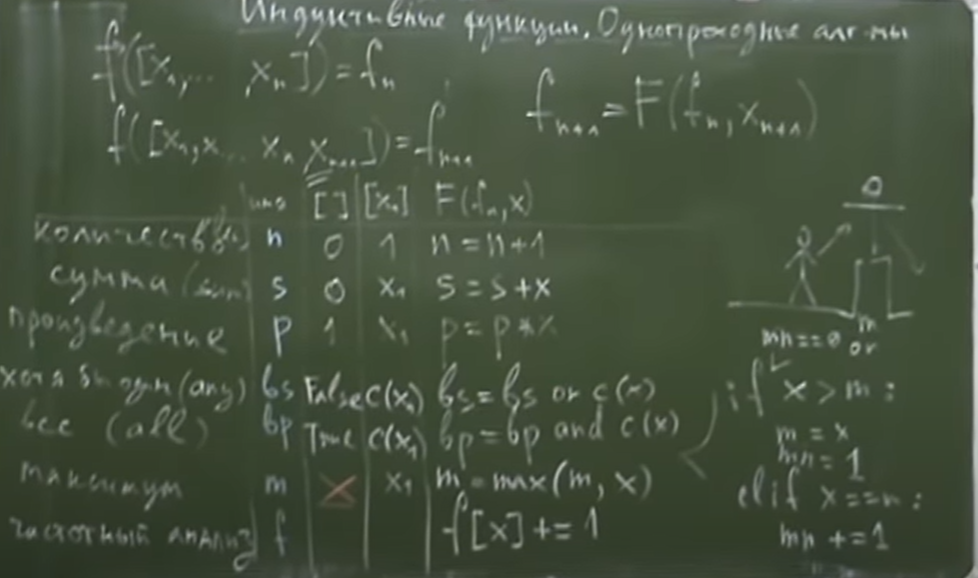 Индуктивные функции. Однопроходные алг-мы
f([x₁,... ,xₙ])=fₙ
f([x₁,x... xₙ xₙ₊₁])=fₙ₊₁
fₙ₊₁=F(fₙ,xₙ₊₁)
[] [x₁] F(fₙ,x)
количество n 0 1 n=n+1
сумма (sum) s 0 x₁ s=s+x
произведение p 1 x₁ p=p*x
хотя бы один (any) bs False c(x₁) bs=bs or c(x)
все (all) bp True c(x₁) bp=bp and c(x)
максимум m x₁ m=max(m,x)
частотный анализ f f[x]+=1
mn==0 or
if x>m:
m=x
mn=1
elif x==m:
mn+=1